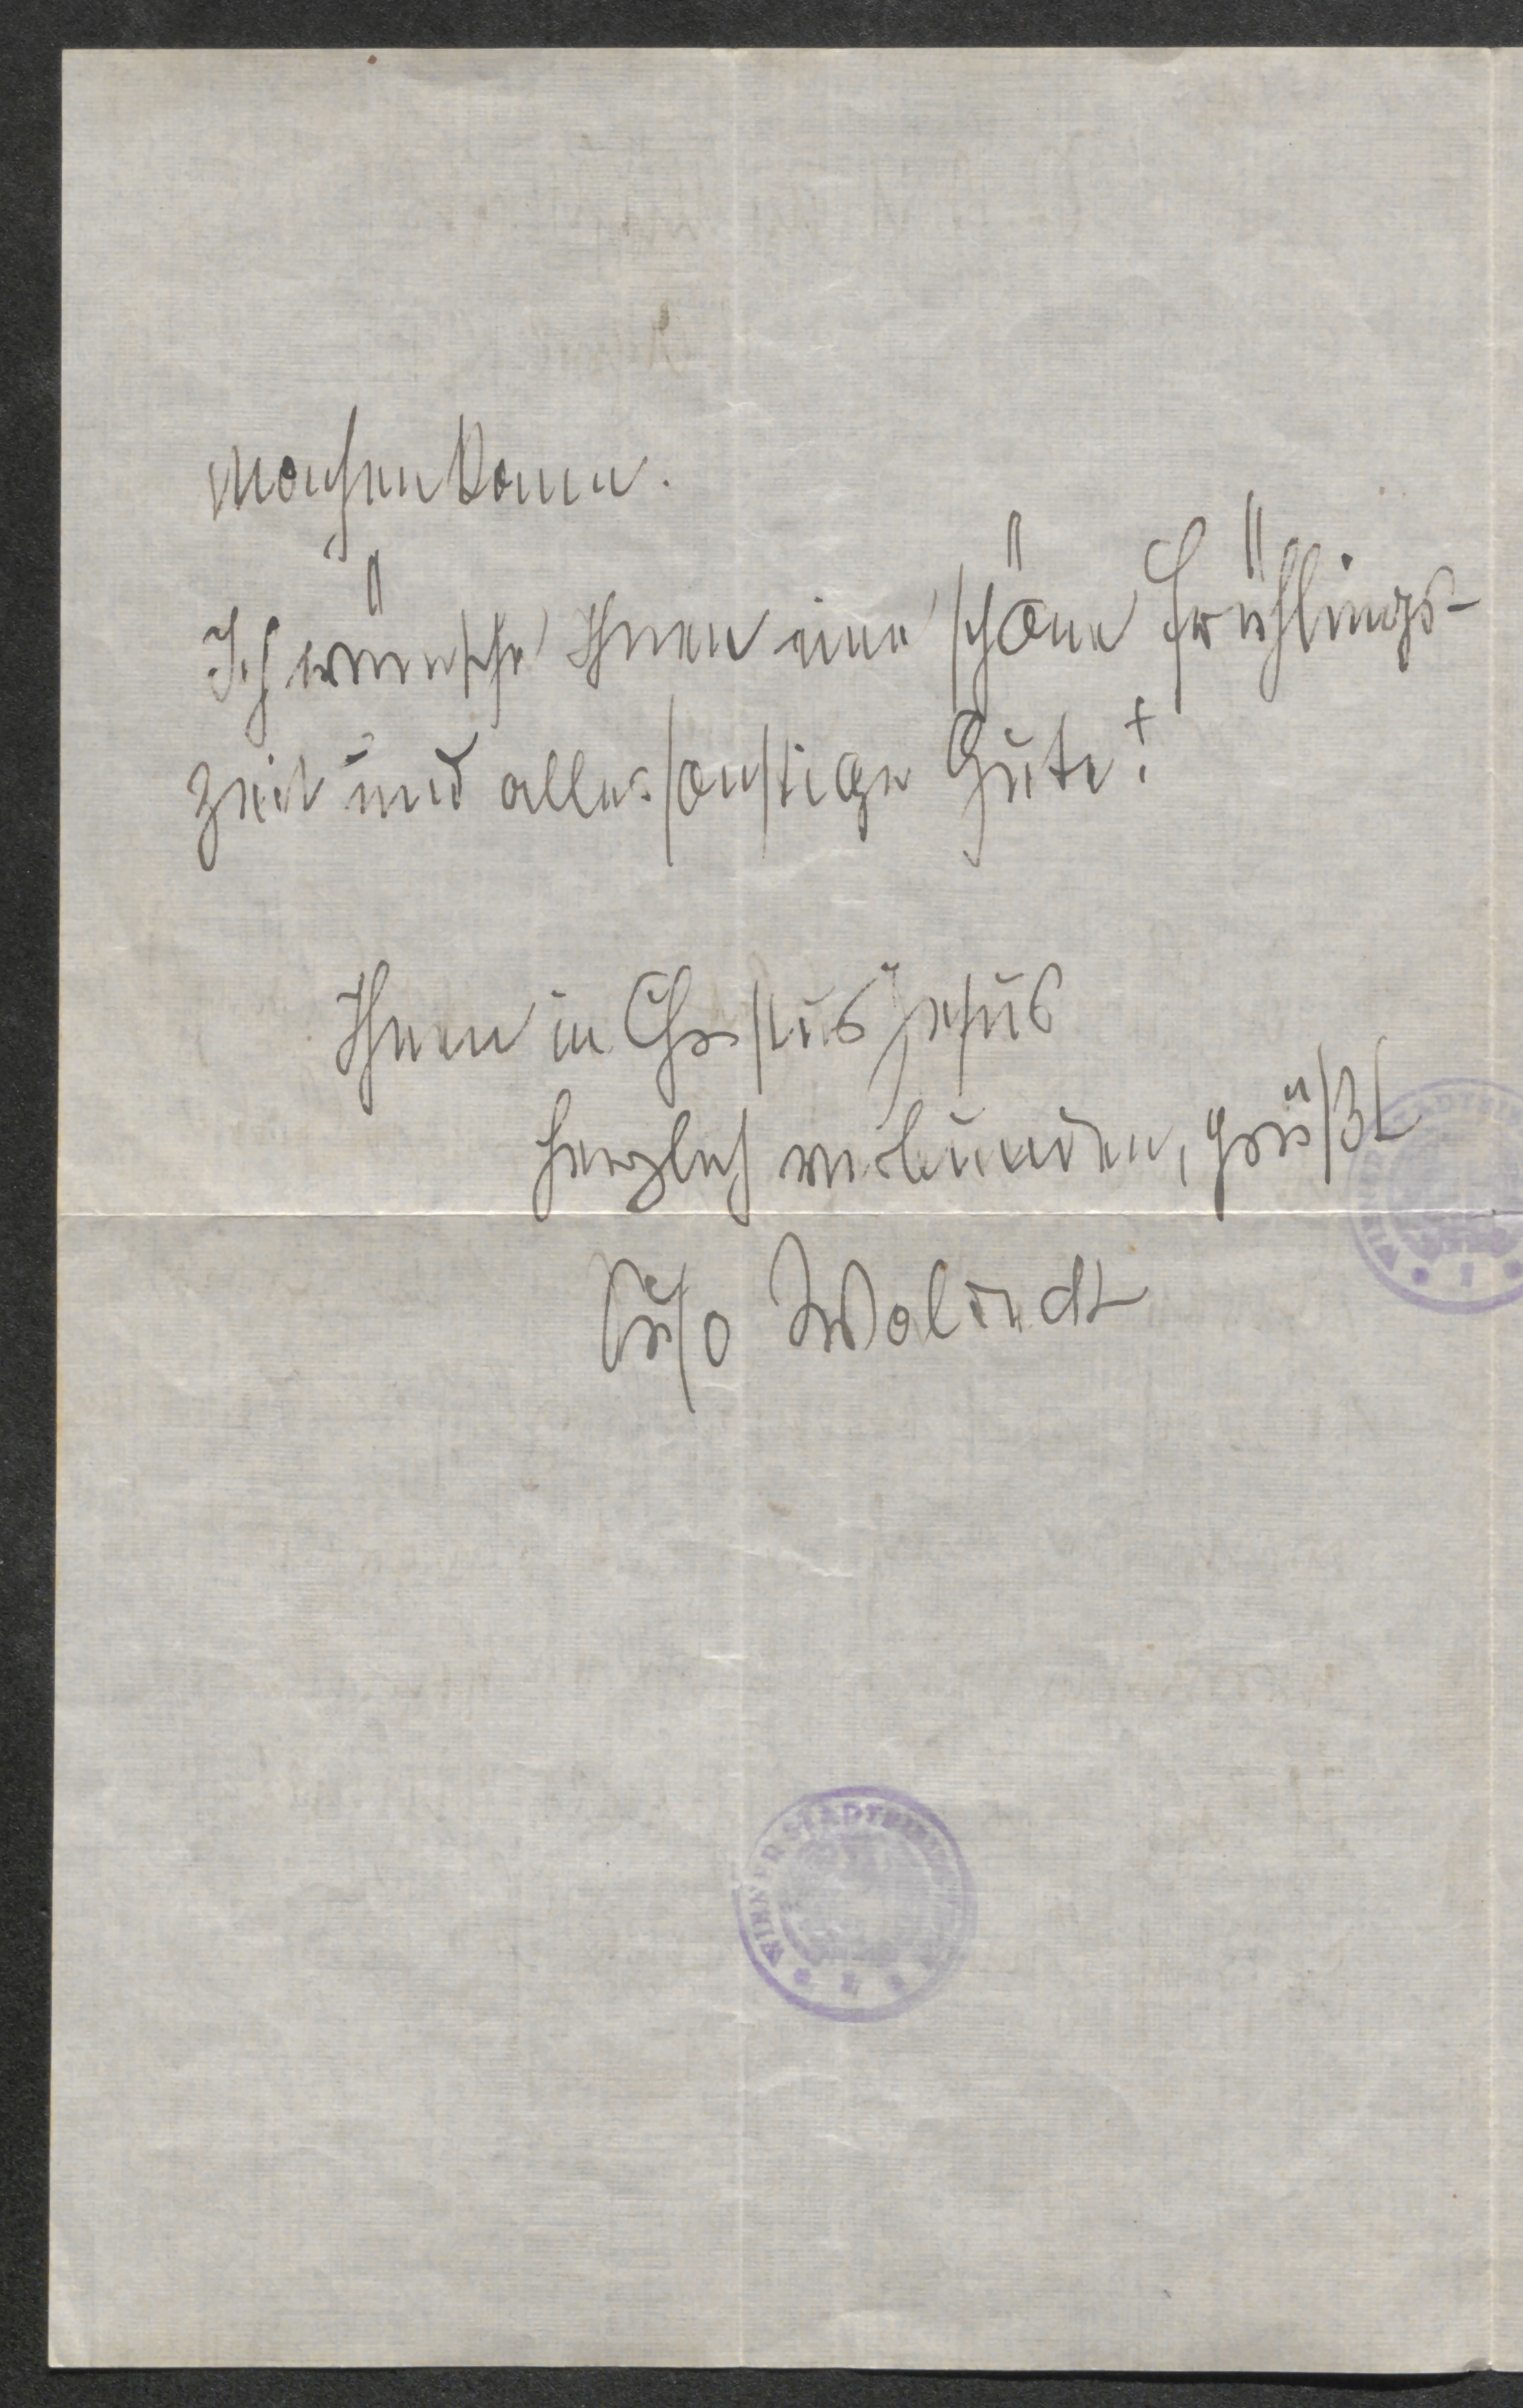 machen kann.
Ich wünsche Ihnen eine schöne Frühlings-
zeit und alles sonstige Gute!
Ihnen in Christus Jesus
herzlich verbunden, grüßt
Suso Waldeck
WIENER STADTBI
WIENER STADTBI
1